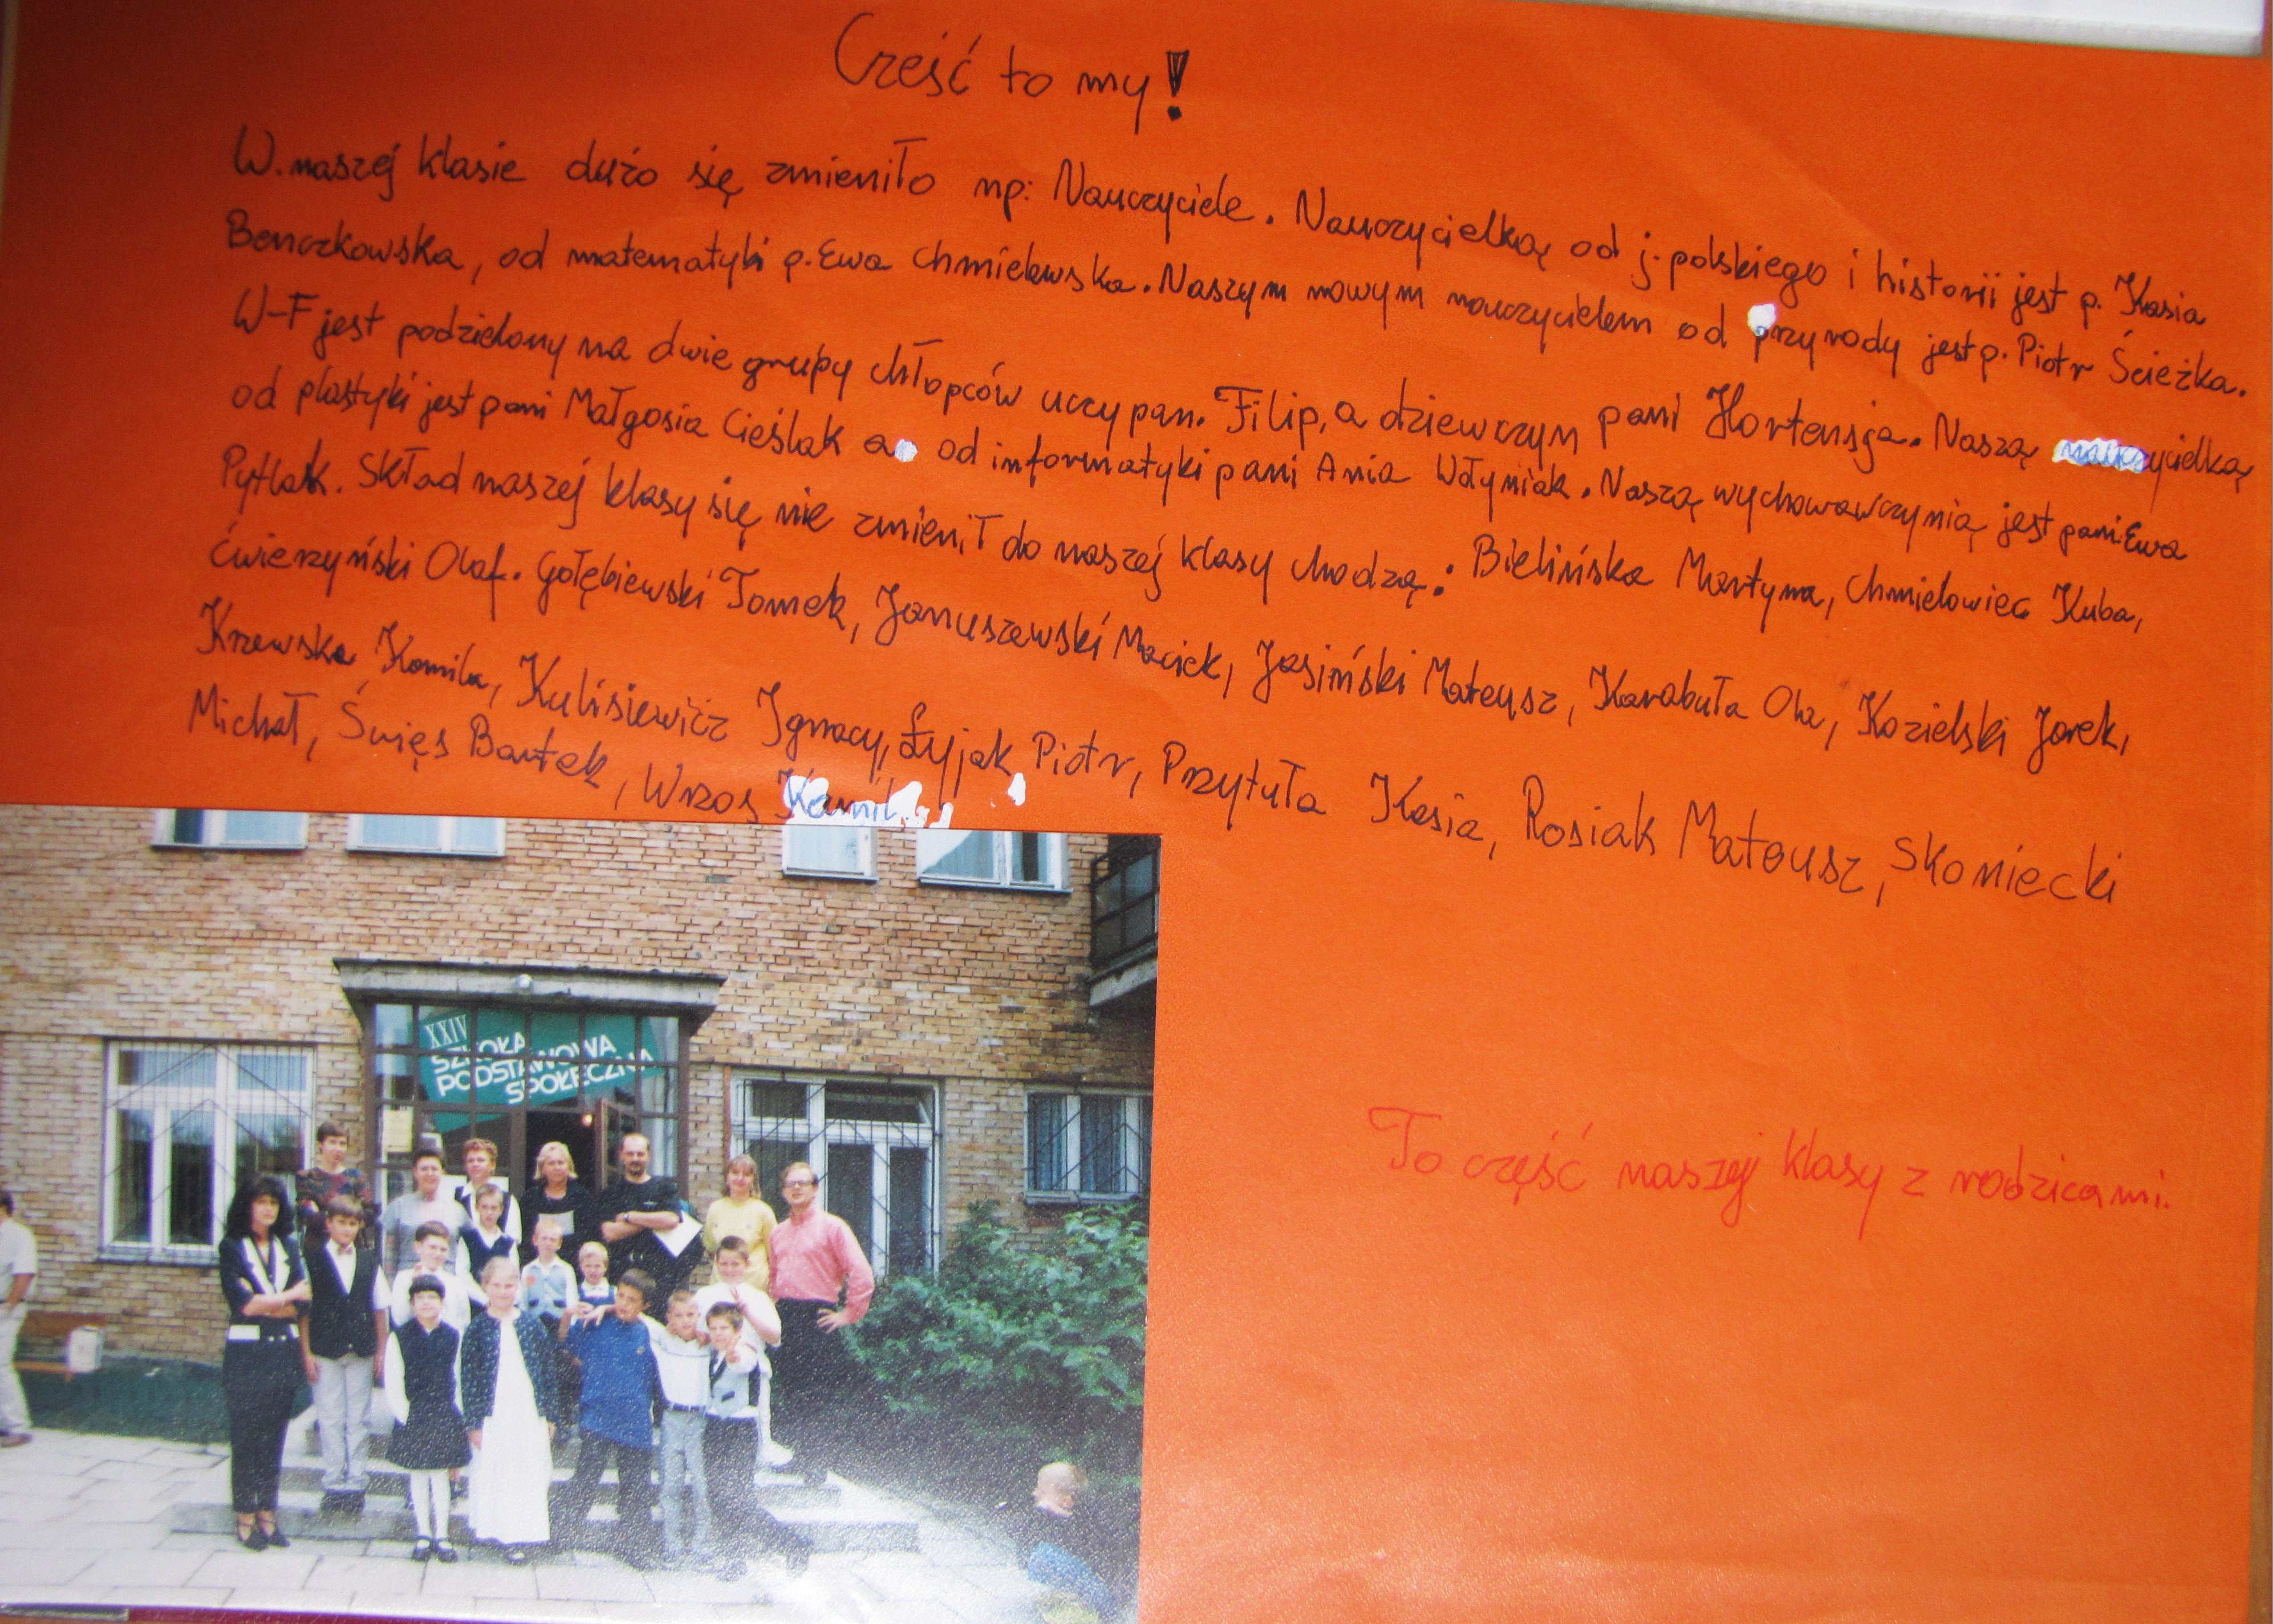 Cześć to my!
W naszej klasie dużo się zmieniło np: Nauczyciele. Nauczycielką od j. polskiego i historii jest p. Kasia
Benczkowska, od matematyki p. Ewa Chmielewska. Naszym nowym nauczycielem od przyrody jest p. Piotr Ścieżka.
W-F jest podzielony na dwie grupy chłopców uczy pan. Filip, a dziewczyn pani Hortensja. Naszą nauczycielką
od plastyki jest pani Małgosia Cieślak a od informatyki pani Ania Wołyniak. Naszą wychowawczynią jest pani Ewa
Pytlak. Skład naszej klasy się nie zmienił do naszej klasy chodzą: Bielińska Martyna, Chmielowiec Kuba,
Ćwierzyński Olaf. Gołębiewski Tomek, Januszewski Maciek, Jasiński Mateusz, Karabuła Ola, Kozielski Jarek,
Krzewska Kamila, Kulisiewicz Ignacy, Łyjak Piotr, Przytuła Kasia, Rosiak Mateusz, Skoniecki
Michał, Święs Bartek, Wrzos Kamil.
XXIV
SZKOŁA
PODSTAWOWA
SPOŁECZNA
To część naszej klasy z rodzicami.